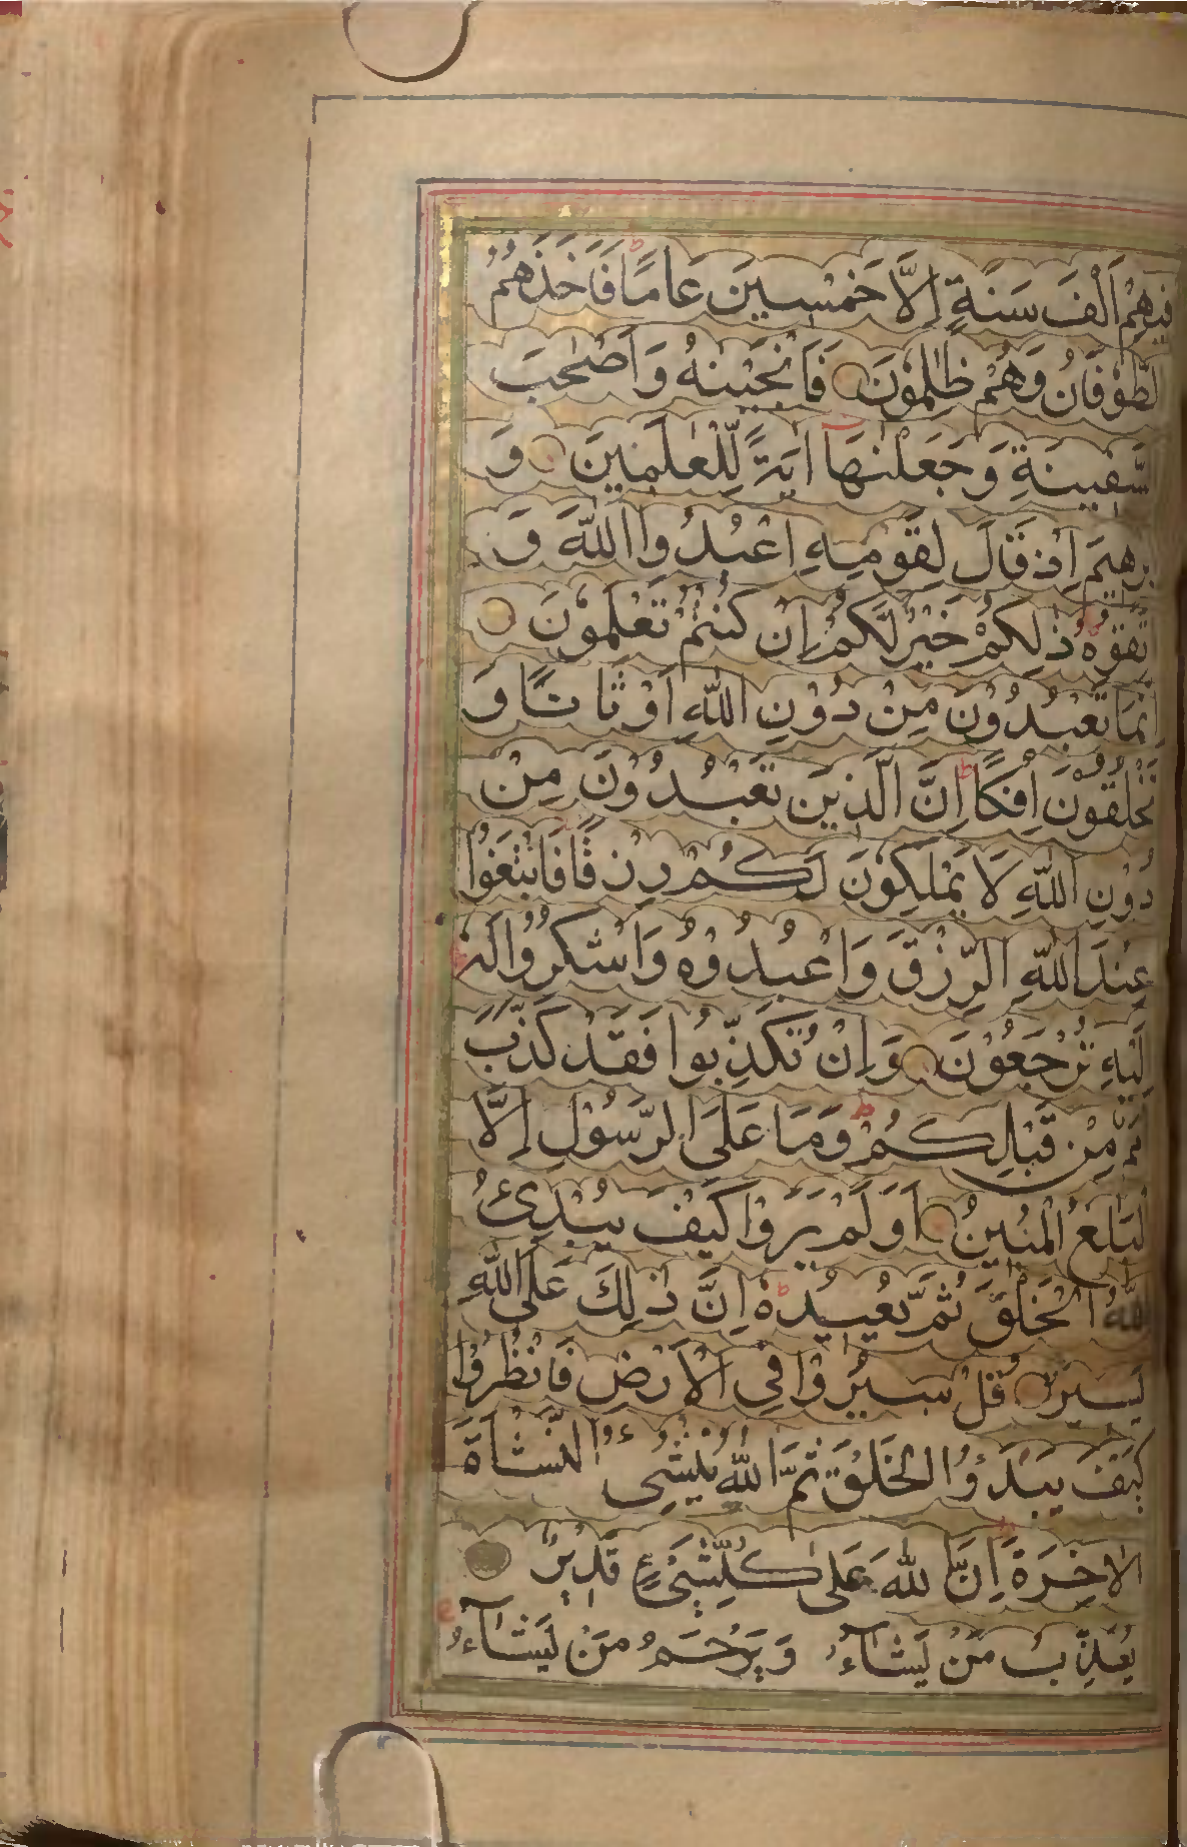 فِيهِمْ اَلْفَ سَنَةٍ اِلَّا خَمْسِينَ عَامًا فَاَخَذَهُمُ
لطُّوْفَانُ وَهُمْ ظٰلِمُوْنَ فَاَنْجَيْنٰهُ وَاَصْحٰبَ
لسَّفِينَةِ وَجَعَلْنٰهَآ اٰيَةً لِّلْعٰلَمِينَ وَ
برٰهِيمَ اِذْ قَالَ لِقَوْمِهِ اعْبُدُوا اللّٰهَ وَ
تَّقُوْهُ ذٰلِكُمْ خَيْرٌ لَّكُمْ اِنْ كُنْتُمْ تَعْلَمُوْنَ
اِنَّمَا تَعْبُدُوْنَ مِنْ دُوْنِ اللّٰهِ اَوْثَانًا وَ
تَخْلُقُوْنَ اِفْكًا اِنَّ الَّذِينَ تَعْبُدُوْنَ مِنْ
دُوْنِ اللّٰهِ لَا يَمْلِكُوْنَ لَكُمْ رِزْقًا فَابْتَغُوْا
عِنْدَ اللّٰهِ الرِّزْقَ وَاعْبُدُوْهُ وَاشْكُرُوْا لَهٗ
اِلَيْهِ تُرْجَعُوْنَ وَاِنْ تُكَذِّبُوْا فَقَدْ كَذَّبَ
مَمٌ مِّنْ قَبْلِكُمْ وَمَا عَلَى الرَّسُوْلِ اِلَّا
لْبَلٰغُ الْمُبِينُ اَوَلَمْ يَرَوْا كَيْفَ يُبْدِئُ
اللّٰهُ الْخَلْقَ ثُمَّ يُعِيدُهٗ اِنَّ ذٰلِكَ عَلَى اللّٰهِ
يَسِيرٌ قُلْ سِيْرُوْا فِي الْاَرْضِ فَانْظُرُوْا
كَيْفَ بَدَءُوا الْخَلْقَ ثُمَّ اللّٰهُ يُنْشِئُ النَّشْاَةَ
الْاٰخِرَةَ اِنَّ اللّٰهَ عَلٰى كُلِّ شَيْءٍ قَدِيْرٌ
يُعَذِّبُ مَنْ يَّشَآءُ وَيَرْحَمُ مَنْ يَّشَآءُ